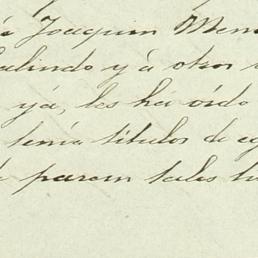 Joaquin Men
alindo y à otros
ya, les ha oido
tenia titulos de
paran tales